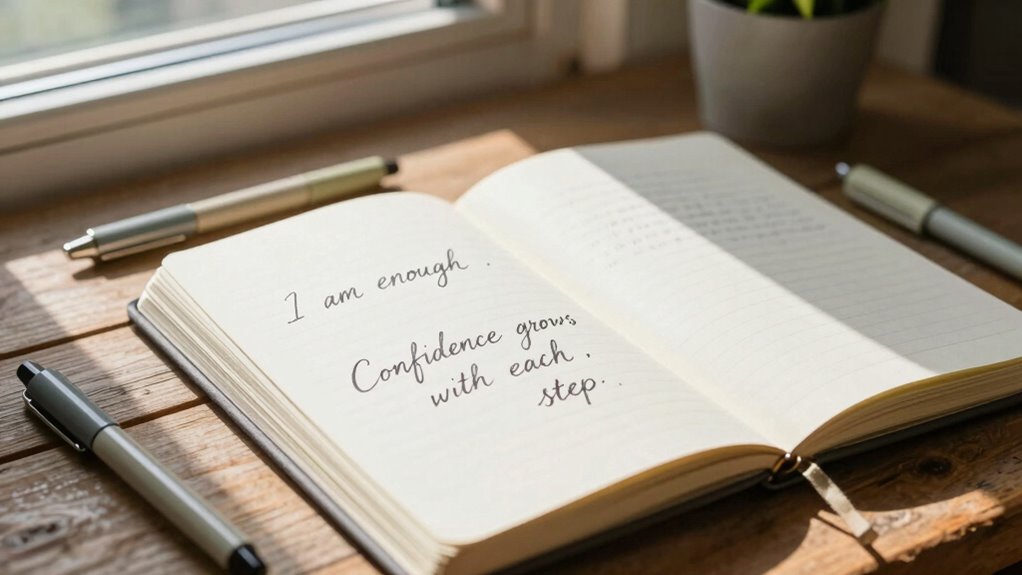 I am enough .
Confidence grows
with each .
step. .